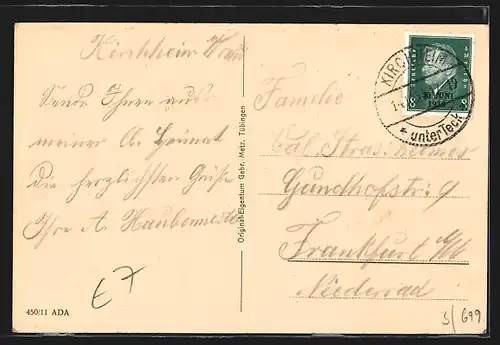 Kirchheim
Sende Ihnen aus
meiner Heimat
die herzlichsten Grüße
Ihre A.
E7
450/11 ADA
Original-Eigentum Gebr. Metz, Tübingen
KIRCHHEIM
* unterTeck
30. JUNI
1930
8
8
Familie
Strassheimer
Gundhofstr. 9
Frankfurt a/M
Niederrad
3/699